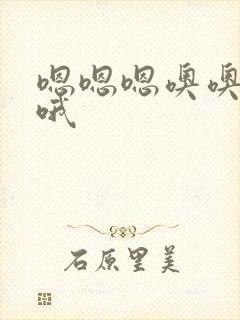 嗯嗯嗯噢噢
哦
石原里美